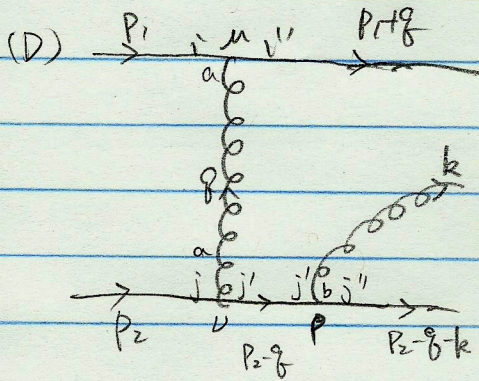 (D) p₁ i μ i'' p₁+q
a
q
k
a
j j' j' b j''
p₂ ν p₂-q ρ p₂-q-k